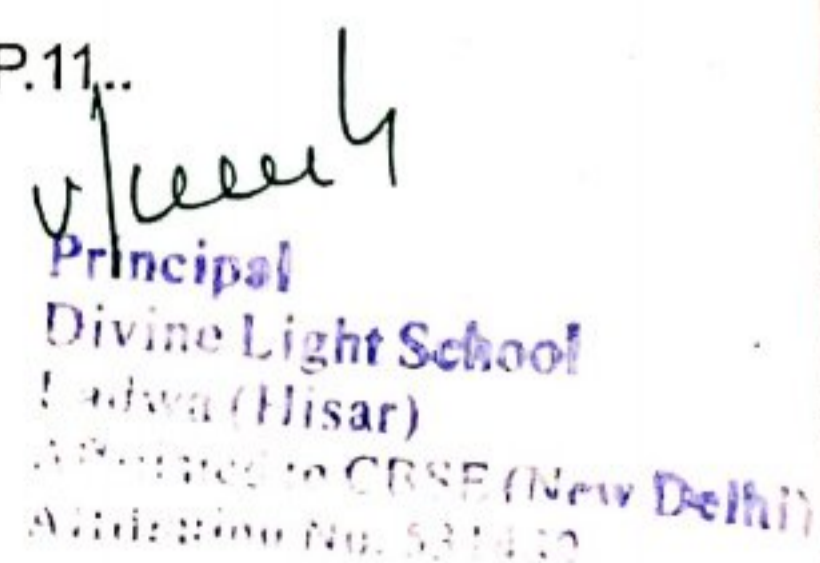 P.11...
Principal
Divine Light School
Ladwa (Hisar)
Affiliated to CBSE (New Delhi)
Affiliation No.